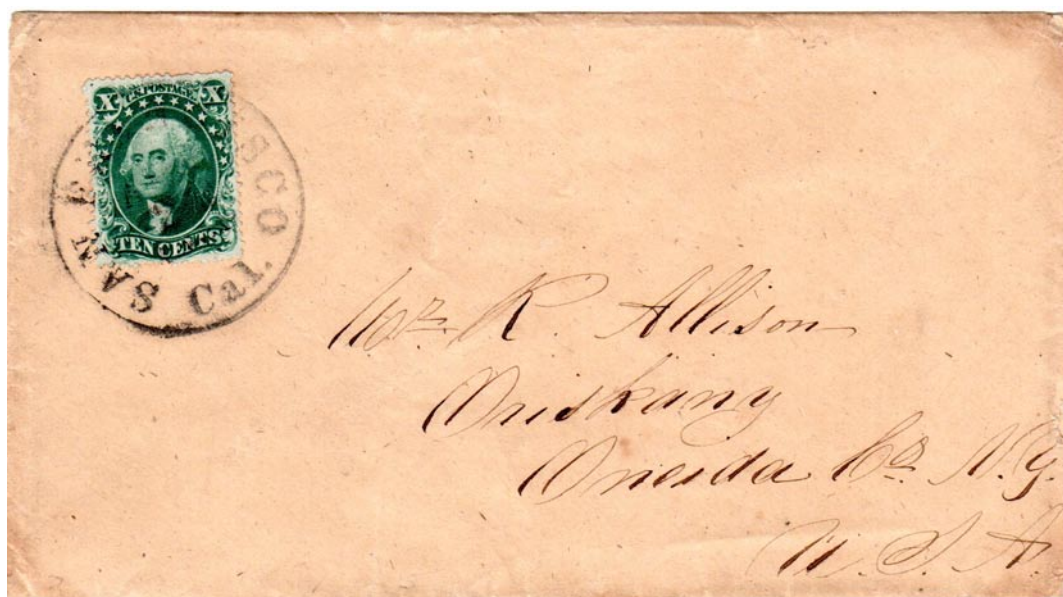 X U.S. POSTAGE X
TEN CENTS
SAN F SCO Cal.
Mr. R. Allison
Oriskany
Oneida Co. N.Y.
U.S.A.